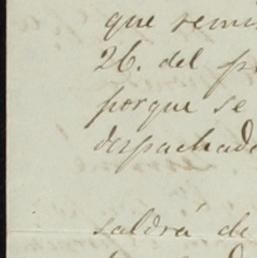 que remi
26. del p
porque se
despachad
saldrá de